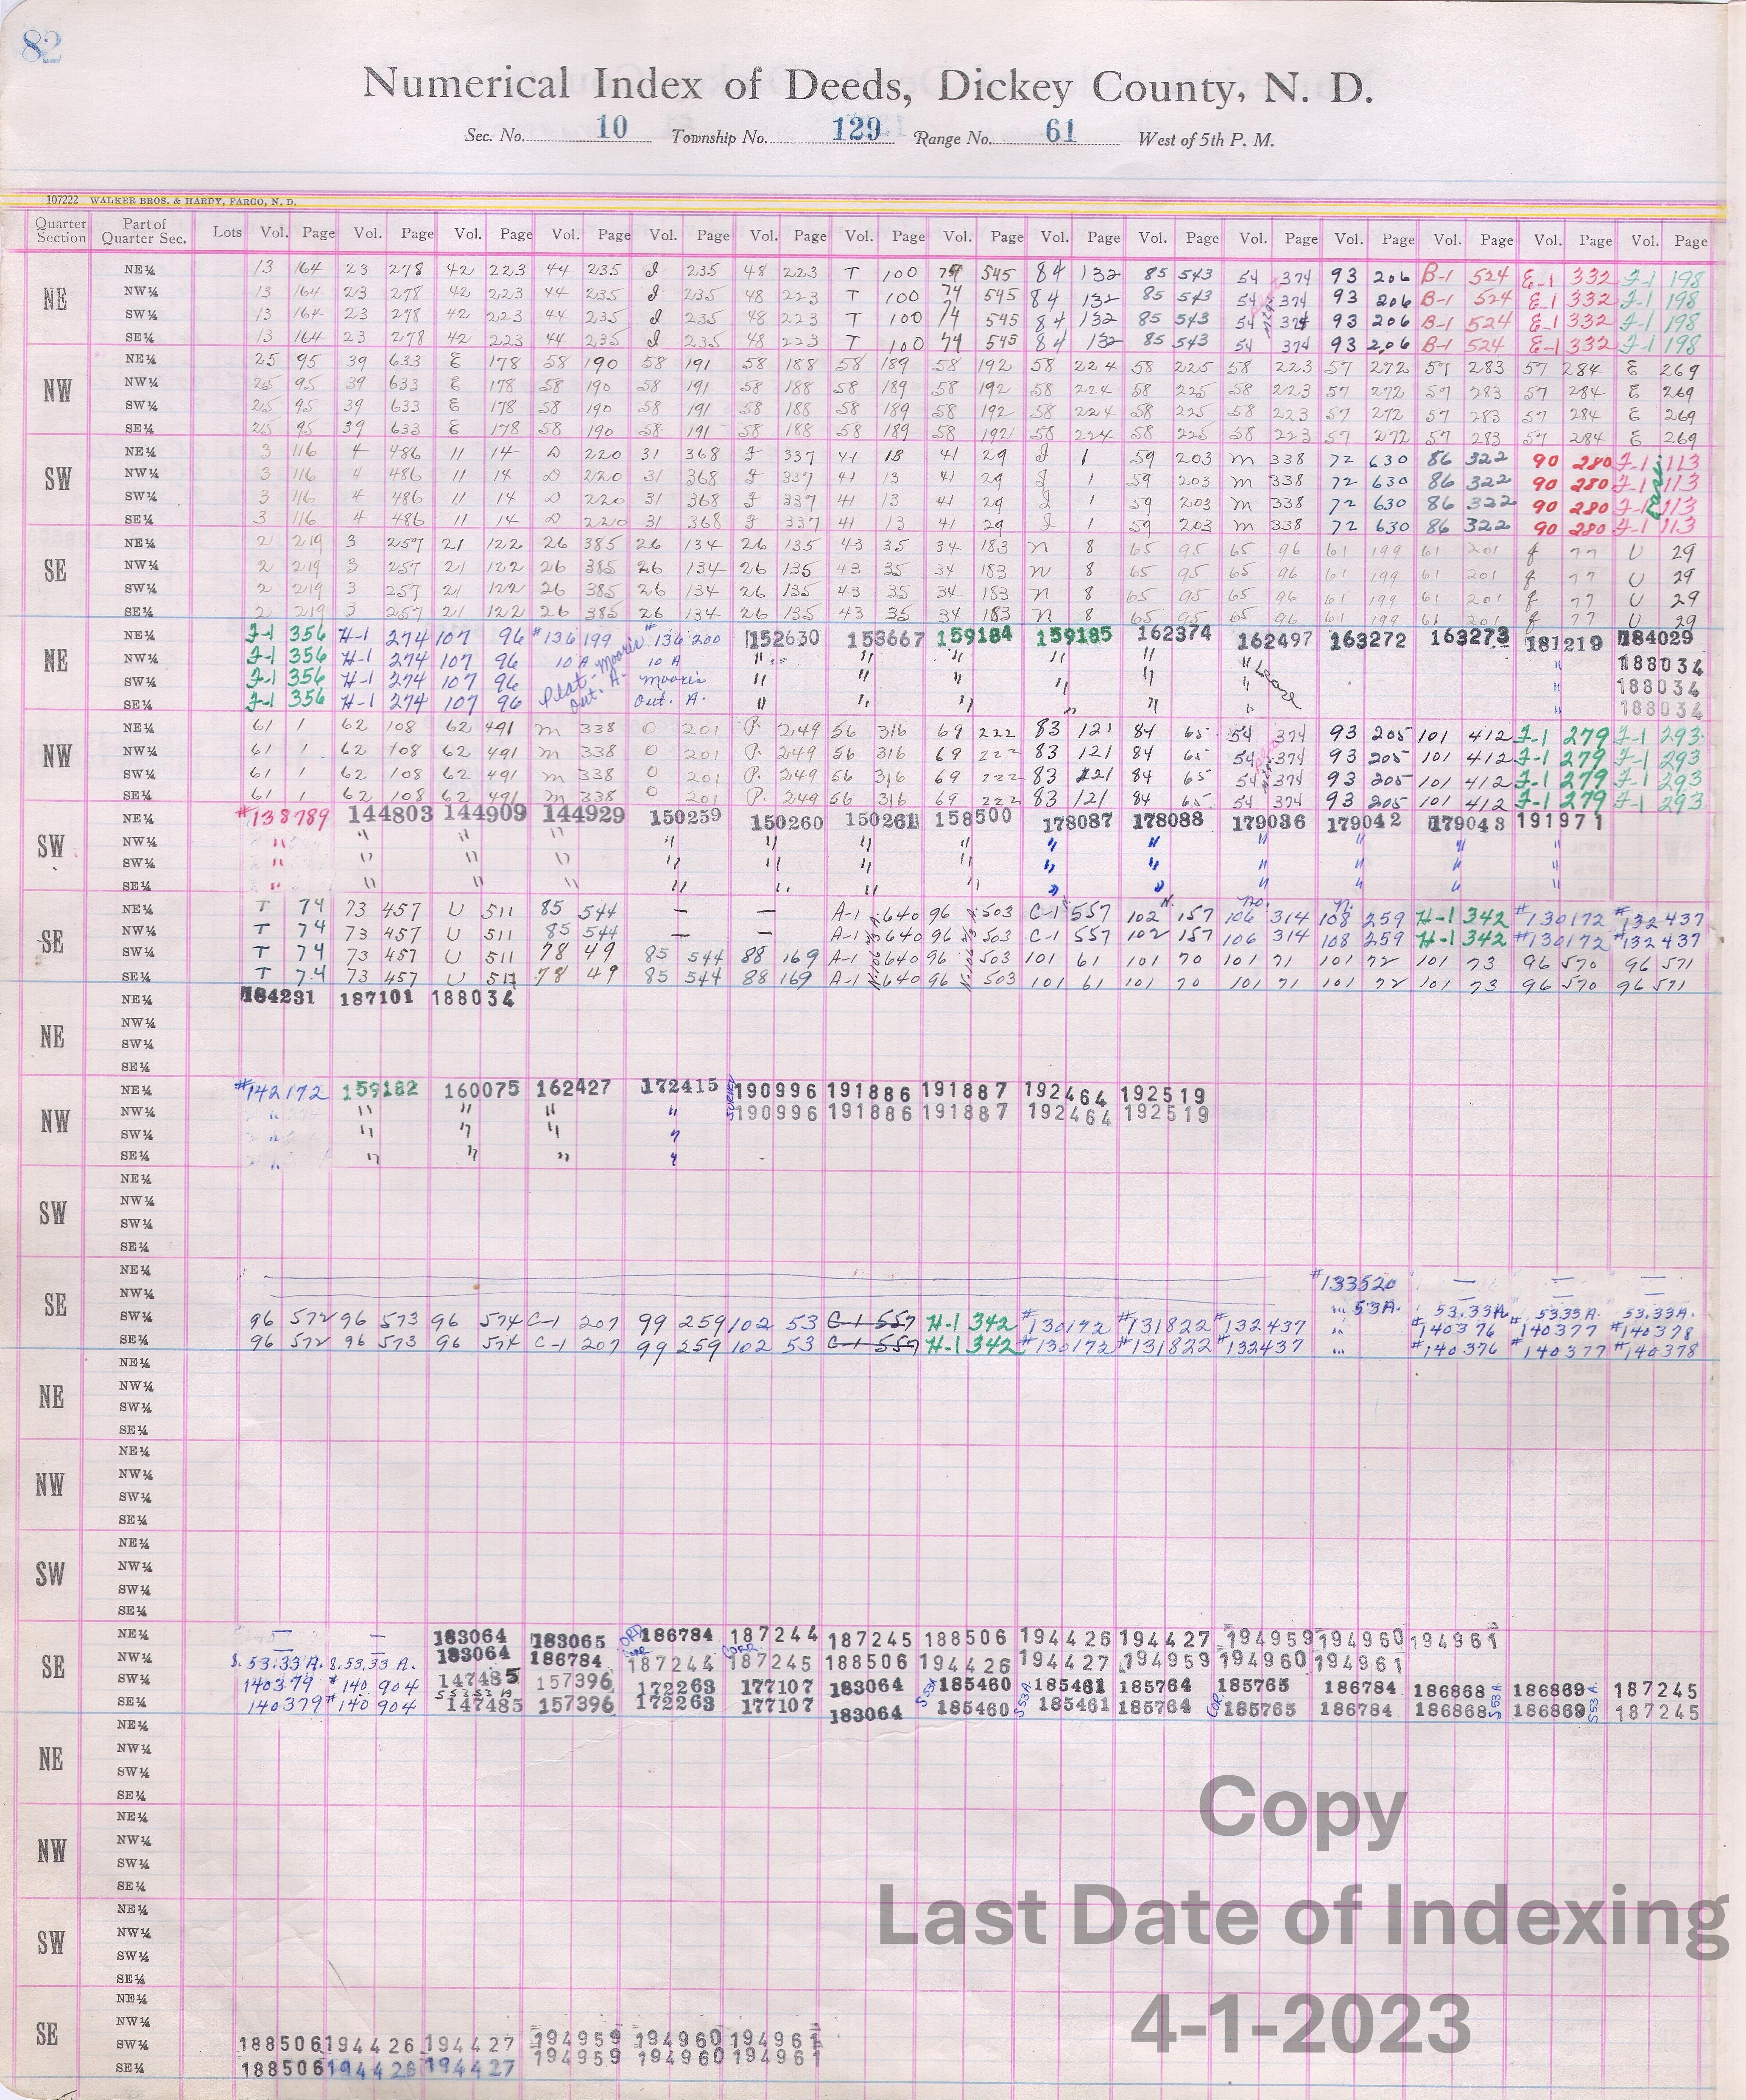 82
Numerical Index of Deeds, Dickey County, N. D.
Sec. No. 10 Township No. 129 Range No. 61 West of 5th P. M.
107222 WALKER BROS. & HARDY, FARGO, N. D.
Quarter Section Part of Quarter Sec. Lots Vol. Page Vol. Page Vol. Page Vol. Page Vol. Page Vol. Page Vol. Page Vol. Page Vol. Page Vol. Page Vol. Page Vol. Page Vol. Page Vol. Page Vol. Page
NE NE¼ 13 164 23 278 42 223 44 235 J 235 48 223 T 100 74 545 84 132 85 543 54 374 93 206 B-1 524 E-1 332 J-1 198
NW¼ 13 164 23 278 42 223 44 235 J 235 48 223 T 100 74 545 84 132 85 543 54 374 93 206 B-1 524 E-1 332 J-1 198
SW¼ 13 164 23 278 42 223 44 235 J 235 48 223 T 100 74 545 84 132 85 543 54 374 93 206 B-1 524 E-1 332 J-1 198
SE¼ 13 164 23 278 42 223 44 235 J 235 48 223 T 100 74 545 84 132 85 543 54 374 93 206 B-1 524 E-1 332 J-1 198
NW NE¼ 25 95 39 633 E 178 58 190 58 191 58 188 58 189 58 192 58 224 58 225 58 223 57 272 57 283 57 284 E 269
NW¼ 25 95 39 633 E 178 58 190 58 191 58 188 58 189 58 192 58 224 58 225 58 223 57 272 57 283 57 284 E 269
SW¼ 25 95 39 633 E 178 58 190 58 191 58 188 58 189 58 192 58 224 58 225 58 223 57 272 57 283 57 284 E 269
SE¼ 25 95 39 633 E 178 58 190 58 191 58 188 58 189 58 192 58 224 58 225 58 223 57 272 57 283 57 284 E 269
SW NE¼ 3 116 4 486 11 14 D 220 31 368 J 337 41 13 41 29 J 1 59 203 m 338 72 630 86 322 90 280 J-1 113
NW¼ 3 116 4 486 11 14 D 220 31 368 J 337 41 13 41 29 J 1 59 203 m 338 72 630 86 322 90 280 J-1 113
SW¼ 3 116 4 486 11 14 D 220 31 368 J 337 41 13 41 29 J 1 59 203 m 338 72 630 86 322 90 280 J-1 113
SE¼ 3 116 4 486 11 14 D 220 31 368 J 337 41 13 41 29 J 1 59 203 m 338 72 630 86 322 90 280 J-1 113
SE NE¼ 2 219 3 257 21 122 26 385 26 134 26 135 43 35 34 183 n 8 65 95 65 96 61 199 61 201 f 77 U 29
NW¼ 2 219 3 257 21 122 26 385 26 134 26 135 43 35 34 183 n 8 65 95 65 96 61 199 61 201 f 77 U 29
SW¼ 2 219 3 257 21 122 26 385 26 134 26 135 43 35 34 183 n 8 65 95 65 96 61 199 61 201 f 77 U 29
SE¼ 2 219 3 257 21 122 26 385 26 134 26 135 43 35 34 183 n 8 65 95 65 96 61 199 61 201 f 77 U 29
NE NE¼ J-1 356 H-1 274 107 96 #136199 #136200 152630 153667 159184 159185 162374 162497 163272 163273 181219 184029
NW¼ J-1 356 H-1 274 107 96 10 A Moore's 10 A " " " " " " Lease " 188034
SW¼ J-1 356 H-1 274 107 96 Plat- Out. A. Moore's " " " " " " " 188034
SE¼ J-1 356 H-1 274 107 96 Out. A. " " " " " " 188034
NW NE¼ 61 1 62 108 62 491 m 338 O 201 P. 249 56 316 69 222 83 121 84 65 54 374 93 205 101 412 J-1 279 J-1 293
NW¼ 61 1 62 108 62 491 m 338 O 201 P. 249 56 316 69 222 83 121 84 65 54 374 93 205 101 412 J-1 279 J-1 293
SW¼ 61 1 62 108 62 491 m 338 O 201 P. 249 56 316 69 222 83 121 84 65 54 374 93 205 101 412 J-1 279 J-1 293
SE¼ 61 1 62 108 62 491 m 338 O 201 P. 249 56 316 69 222 83 121 84 65 54 374 93 205 101 412 J-1 279 J-1 293
SW NE¼ #138789 144803 144909 144929 150259 150260 150261 158500 178087 178088 179036 179042 179043 191971
NW¼ " " " " " " " " " " " " " "
SW¼ " " " " " " " " " " " " " "
SE¼ " " " " " " " " " " " " " "
SE NE¼ T 74 73 457 U 511 85 544 — — A-1 640 96 503 C-1 557 102 157 106 314 108 259 H-1 342 #130172 #132437
NW¼ T 74 73 457 U 511 85 544 — — A-1 640 96 503 C-1 557 102 157 106 314 108 259 H-1 342 #130172 #132437
SW¼ T 74 73 457 U 511 78 49 85 544 88 169 A-1 640 96 503 101 61 101 70 101 71 101 72 101 73 96 570 96 571
SE¼ T 74 73 457 U 511 78 49 85 544 88 169 A-1 640 96 503 101 61 101 70 101 71 101 72 101 73 96 570 96 571
NE NE¼ 184231 187101 188034
NW¼
SW¼
SE¼
NW NE¼ #142172 159182 160075 162427 172415 190996 191886 191887 192464 192519
NW¼ " " " " " 190996 191886 191887 192464 192519
SW¼ " " " " "
SE¼ " " " " "
SW NE¼
NW¼
SW¼
SE¼
SE NE¼ #133520 — — —
NW¼ " 53A. 53.33A. 53.33 A. 53.33A.
SW¼ 96 572 96 573 96 574 C-1 207 99 259 102 53 C-1 557 H-1 342 #130172 #131822 #132437 " #140376 #140377 #140378
SE¼ 96 572 96 573 96 574 C-1 207 99 259 102 53 C-1 557 H-1 342 #130172 #131822 #132437 " #140376 #140377 #140378
NE NE¼
NW¼
SW¼
SE¼
NW NE¼
NW¼
SW¼
SE¼
SW NE¼
NW¼
SW¼
SE¼
SE NE¼ — — 183064 183065 186784 187244 187245 188506 194426 194427 194959 194960 194961
NW¼ S. 53.33 A. S. 53.33 A. 183064 186784 187244 187245 188506 194426 194427 194959 194960 194961
SW¼ 140379 #140904 147485 157396 172263 177107 183064 185460 185461 185764 185765 186784 186868 186869 187245
SE¼ 140379 #140904 147485 157396 172263 177107 183064 S53A 185460 S53A. 185461 185764 COR. 185765 186784 186868 S53A. 186869 S53A. 187245
NE NE¼
NW¼
SW¼
SE¼
NW NE¼
NW¼
SW¼
SE¼
SW NE¼
NW¼
SW¼
SE¼
SE NE¼
NW¼
SW¼ 188506 194426 194427 194959 194960 194961
SE¼ 188506 194426 194427 194959 194960 194961
Copy
Last Date of Indexing
4-1-2023